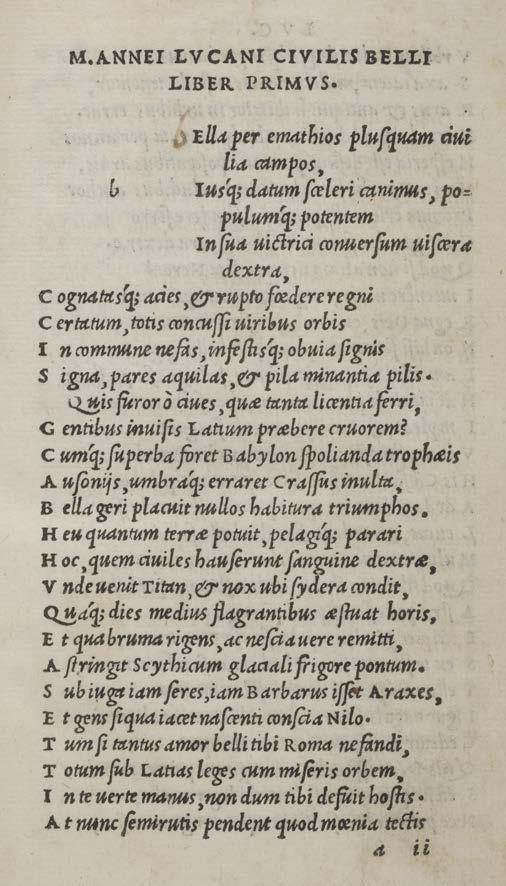 M. ANNEI LVCANI CIVILIS BELLI
LIBER PRIMVS.
b Ella per emathios plusquam ciui
lia campos,
b Iusq; datum sceleri canimus, po-
pulumq; potentem
In sua uictrici conuersum uiscera
dextra,
C ognatasq; acies, & rupto fœdere regni
C ertatum, totis concussi uiribus orbis
I n commune nefas, infestisq; obuia signis
S igna, pares aquilas, & pila minantia pilis.
Quis furor ò ciues, quæ tanta licentia ferri,
G entibus inuisis Latium præbere cruorem?
C umq; superba foret Babylon spolianda trophæis
A usonijs, umbraq; erraret Crassus inulta,
B ella geri placuit nullos habitura triumphos.
H eu quantum terræ potuit, pelagiq; parari
H oc, quem ciuiles hauserunt sanguine dextræ,
V nde uenit Titan, & nox ubi sydera condit,
Quáq; dies medius flagrantibus æstuat horis,
E t qua bruma rigens, ac nescia uere remitti,
A stringit Scythicum glaciali frigore pontum.
S ub iuga iam seres, iam Barbarus isset Araxes,
E t gens siqua iacet nascenti conscia Nilo.
T um si tantus amor belli tibi Roma nefandi,
T otum sub Latias leges cum miseris orbem,
I n te uerte manus, non dum tibi defuit hostis.
A t nunc semirutis pendent quod mœnia tectis
a ii